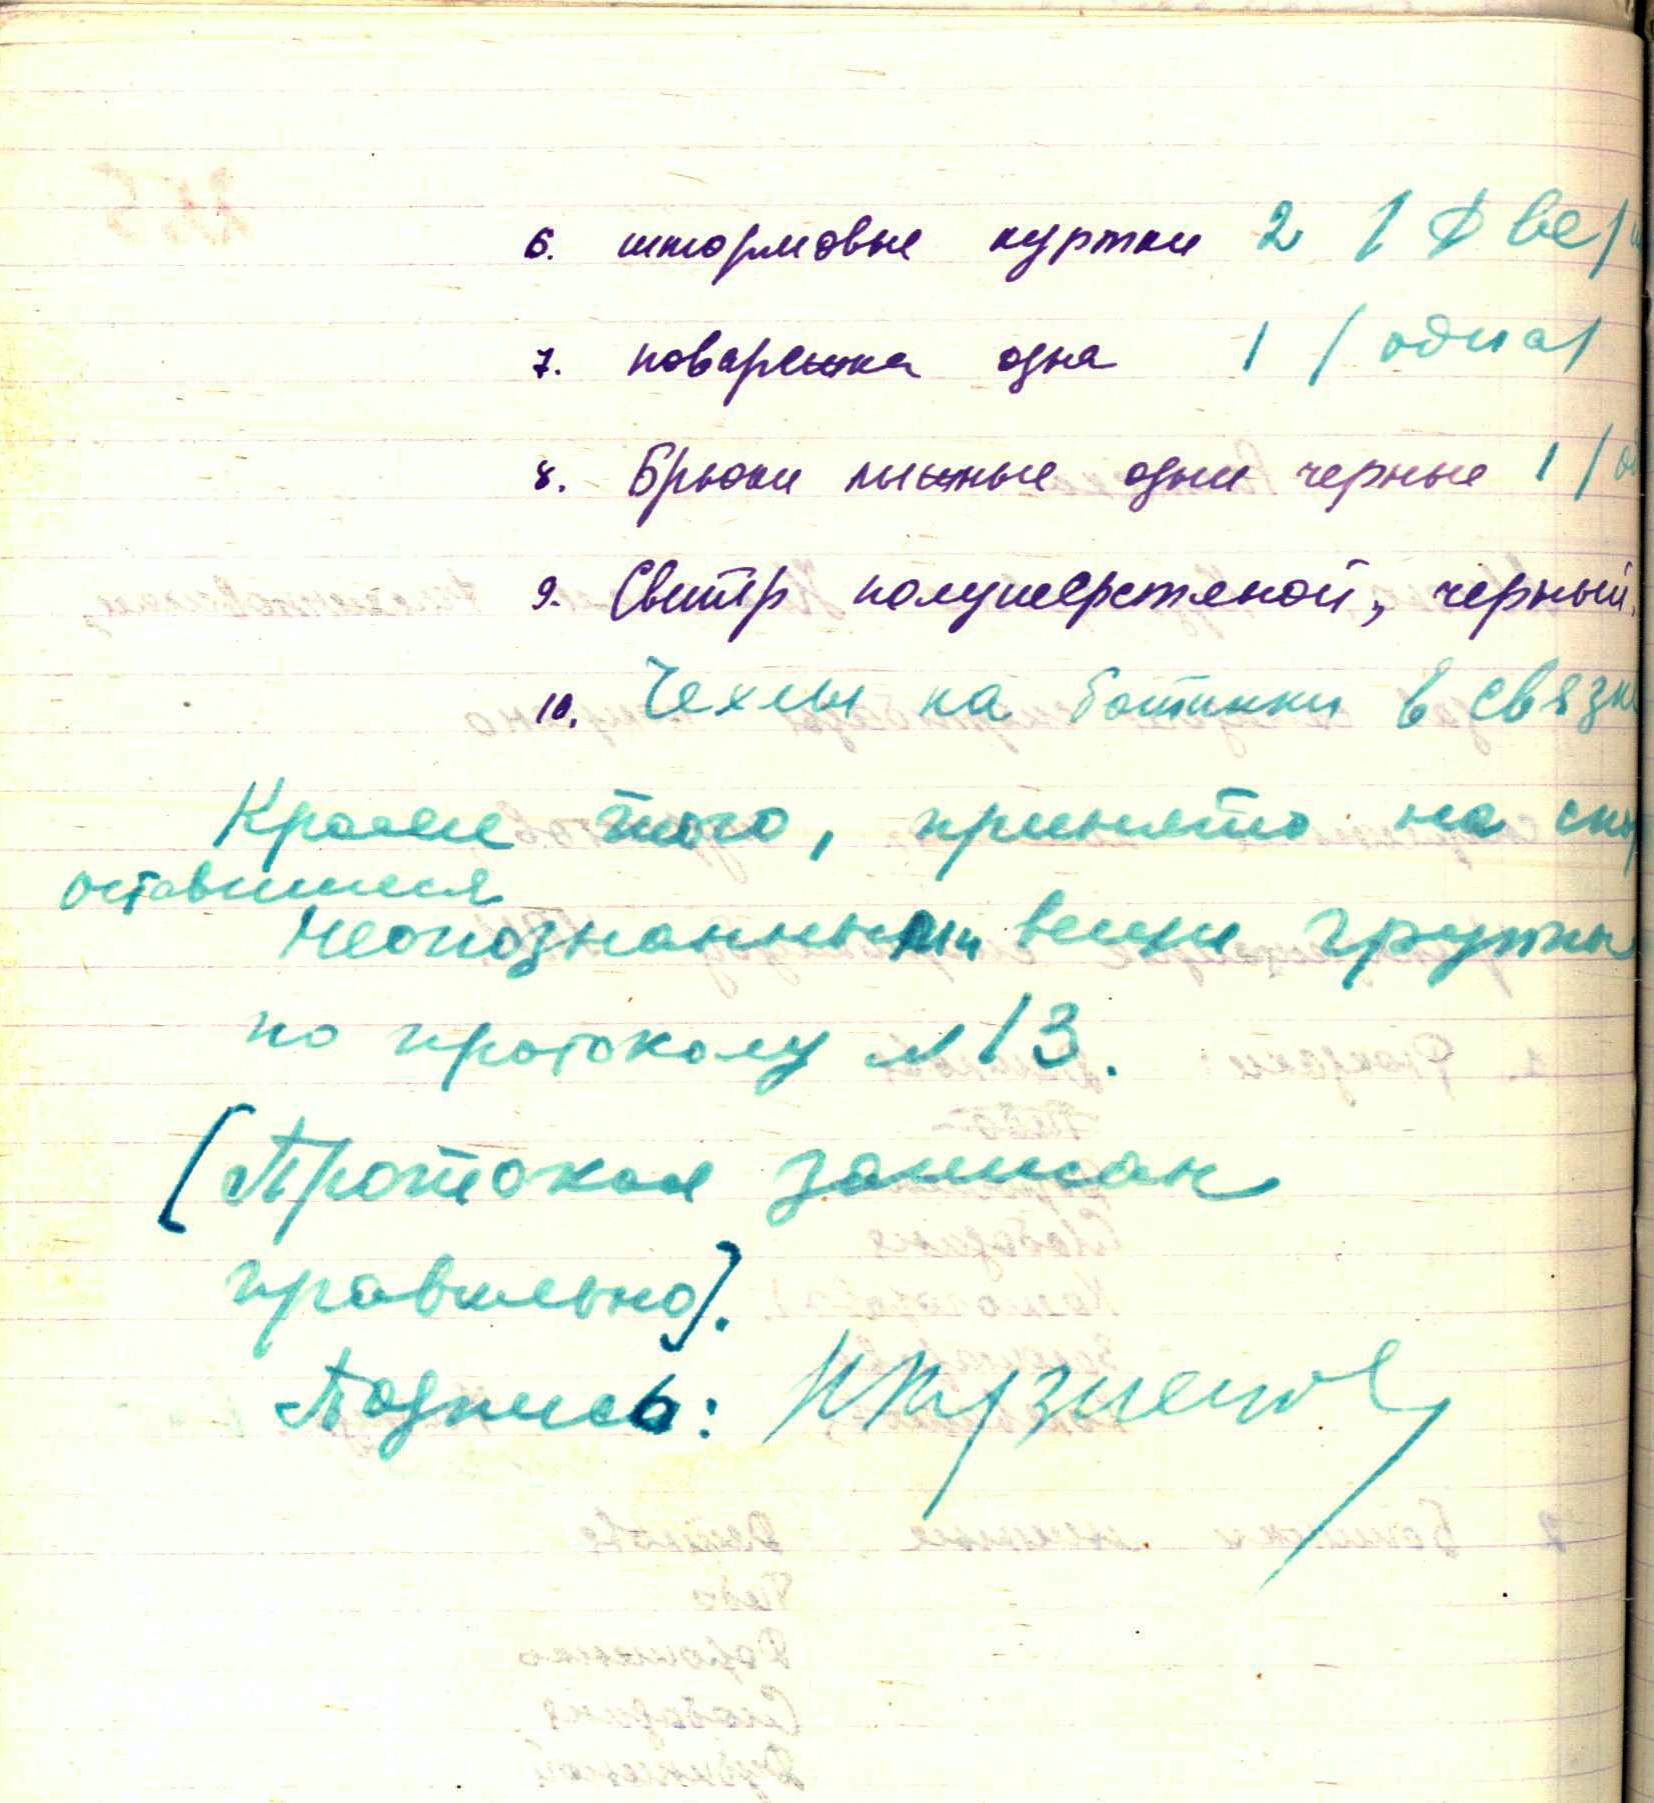 6. штормовые куртки 2 /Две/
7. поварешка одна 1 /одна/
8. Брюки лыжные одни черные 1 /од
9. Свитр полушерстяной, черный.
10. Чехлы на ботинки в связк
Кроме того, принято на
оставшиеся
неопознанными вещи группы
по протоколу №13.
[Протокол записан
правильно].
Подпись: Кузнецов